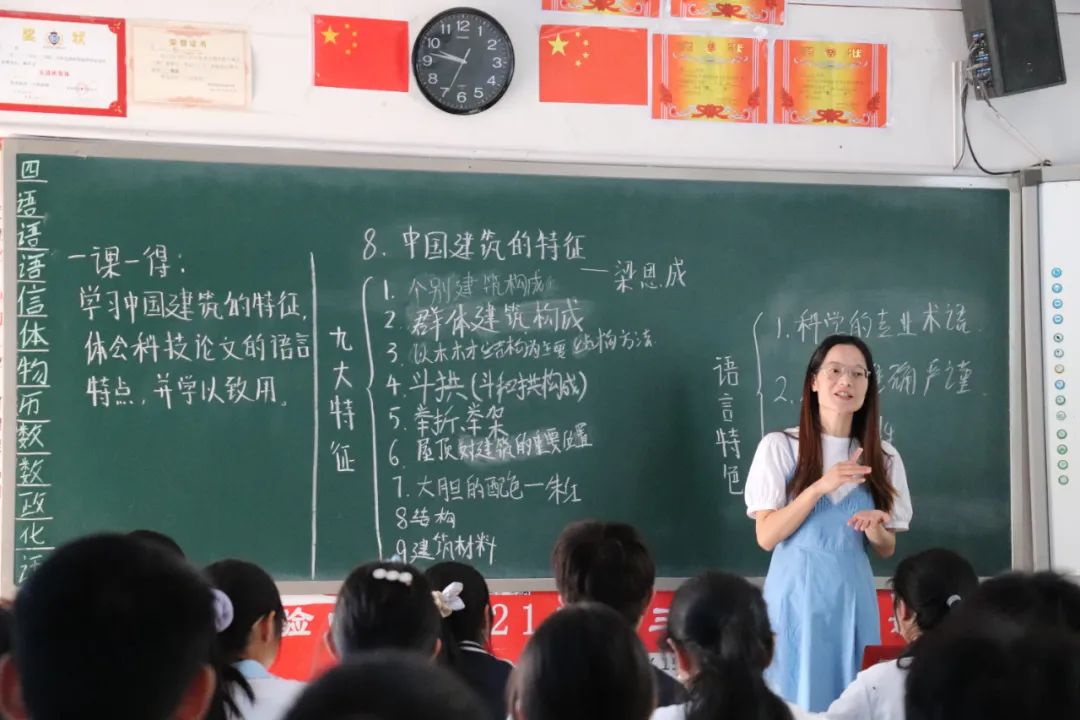 奖状
荣誉证书
四
语
语
语
信
体
物
历
数
数
政
化
一课一得：
学习中国建筑的特征，
体会科技论文的语言
特点，并学以致用。
九大特征
8. 中国建筑的特征
——梁思成
1. 个别建筑构成
2. 群体建筑构成
3. 以木材结构为主要结构方法
4. 斗拱(斗和拱构成)
5. 举折，举架
6. 屋顶对建筑的重要位置
7. 大胆的配色—朱红
8 结构
9 建筑材料
语言特色
1. 科学的专业术语
2. 确严谨
性
21
三